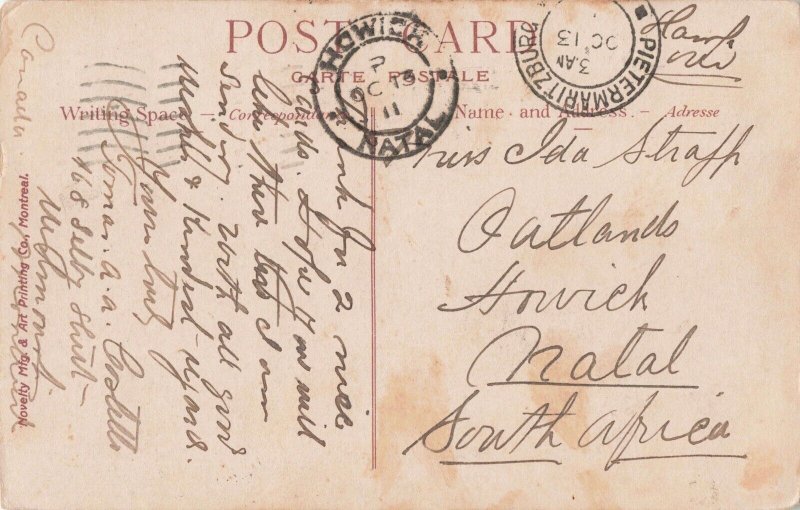 POST CARD
CARTE POSTALE
Writing Space – Correspondance
Name and Address. – Adresse
HOWICK
P
OC 13
11
NATAL
PIETERMARITZBURG
3 AM
OC 13
Miss Ida Strapp
Oatlands
Howick
Natal
South Africa
2 nice
cards. Hope you will
like these ones I am
sending. With all good
wishes & Kindest regards.
Yours truly
168 Selby Street
Westmount
Montreal
Canada.
Novelty Mfg. & Art Printing Co., Montreal.